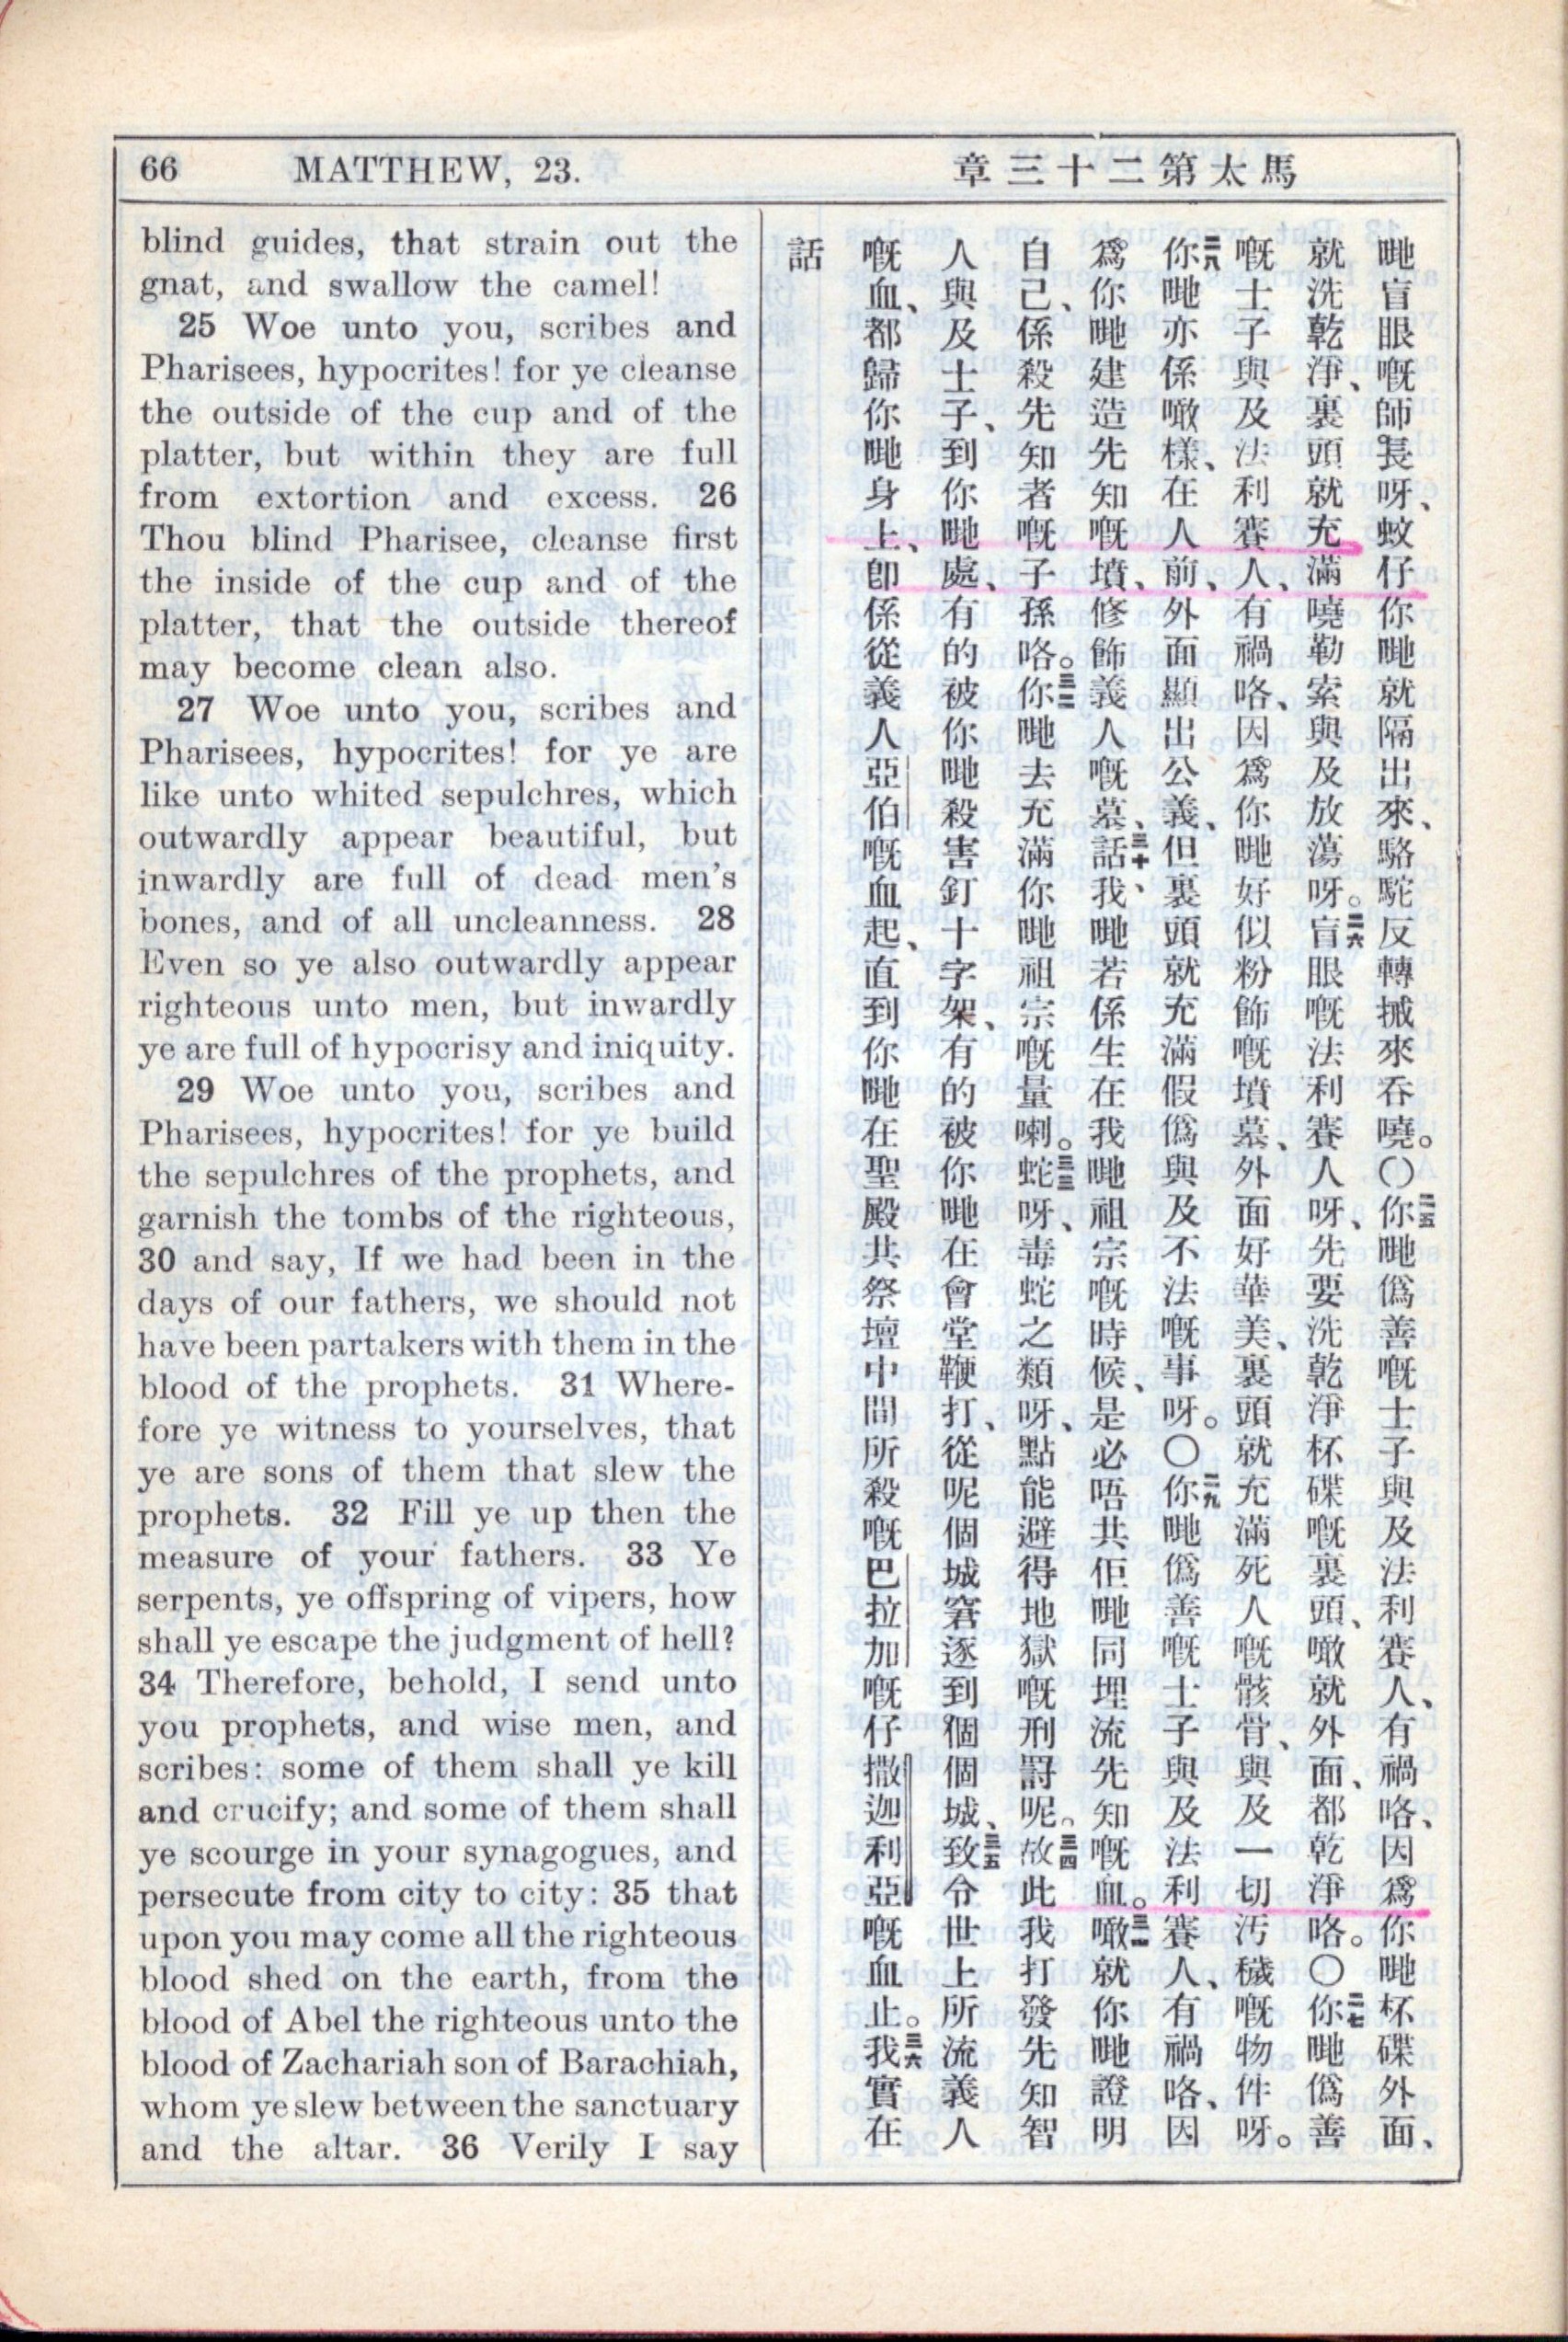 66 MATTHEW, 23.
章三十二第太馬
blind guides, that strain out the
gnat, and swallow the camel!
25 Woe unto you, scribes and
Pharisees, hypocrites! for ye cleanse
the outside of the cup and of the
platter, but within they are full
from extortion and excess. 26
Thou blind Pharisee, cleanse first
the inside of the cup and of the
platter, that the outside thereof
may become clean also.
27 Woe unto you, scribes and
Pharisees, hypocrites! for ye are
like unto whited sepulchres, which
outwardly appear beautiful, but
inwardly are full of dead men's
bones, and of all uncleanness. 28
Even so ye also outwardly appear
righteous unto men, but inwardly
ye are full of hypocrisy and iniquity.
29 Woe unto you, scribes and
Pharisees, hypocrites! for ye build
the sepulchres of the prophets, and
garnish the tombs of the righteous,
30 and say, If we had been in the
days of our fathers, we should not
have been partakers with them in the
blood of the prophets. 31 Where-
fore ye witness to yourselves, that
ye are sons of them that slew the
prophets. 32 Fill ye up then the
measure of your fathers. 33 Ye
serpents, ye offspring of vipers, how
shall ye escape the judgment of hell?
34 Therefore, behold, I send unto
you prophets, and wise men, and
scribes: some of them shall ye kill
and crucify; and some of them shall
ye scourge in your synagogues, and
persecute from city to city: 35 that
upon you may come all the righteous
blood shed on the earth, from the
blood of Abel the righteous unto the
blood of Zachariah son of Barachiah,
whom ye slew between the sanctuary
and the altar. 36 Verily I say
哋盲眼嘅師長呀、蚊仔你哋就隔出來、駱駝反轉搣來吞嘵。〇二五你哋僞善嘅士子與及法利賽人、有禍咯、因爲你哋杯碟外面、
就洗乾淨、裏頭就充滿嘵勒索與及放蕩呀。二六盲眼嘅法利賽人呀、先要洗乾淨杯碟嘅裏頭、噉就外面、都乾淨咯。〇二七你哋僞善
嘅士子與及法利賽人、有禍咯、因爲你哋好似粉飾嘅墳墓、外面好華美、裏頭就充滿死人嘅骸骨、與及一切汚穢嘅物件呀。
二八你哋亦係噉樣、在人前、外面顯出公義、但裏頭就充滿假僞與及不法嘅事呀。〇二九你哋僞善嘅士子與及法利賽人、有禍咯、因
爲你哋建造先知嘅墳、修飾義人嘅墓、三十話、我哋若係生在我哋祖宗嘅時候、是必唔共佢哋同埋流先知嘅血。三一噉就你哋證明
自己、係殺先知者嘅子孫咯。三二你哋去充滿你哋祖宗嘅量喇。三三蛇呀、毒蛇之類呀、點能避得地獄嘅刑罸呢。三四故此我打發先知智
人與及士子、到你哋處、有的被你哋殺害釘十字架、有的被你哋在會堂鞭打、從呢個城窘逐到個個城、三五致令世上所流義人
嘅血、都歸你哋身上、卽係從義人亞伯嘅血起、直到你哋在聖殿共祭壇中間所殺嘅巴拉加嘅仔撒迦利亞嘅血止。三六我實在
話